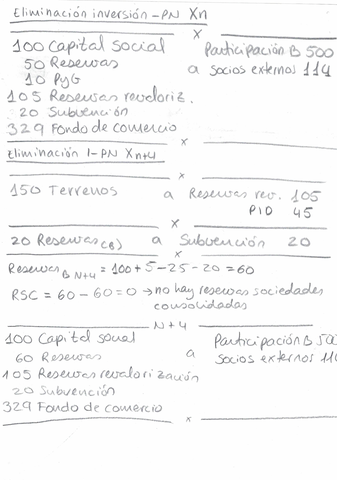 Eliminación inversión-PN Xn
x
100 Capital social Participación B 500
50 Reservas a socios externos 114
10 PyG
105 Reservas revaloriz.
20 Subvención
329 Fondo de comercio
x
Eliminación I-PN Xn+4
x
150 Terrenos a Reservas rev. 105
PID 45
x
20 Reservas(B) a Subvención 20
x
Reservas B N+4 = 100+5-25-20=60
RSC = 60-60=0 → no hay reservas sociedades
consolidadas
N+4
100 Capital social Participación B 50
60 Reservas a socios externos 11
105 Reservas revalorización
20 Subvención
329 Fondo de comercio
x